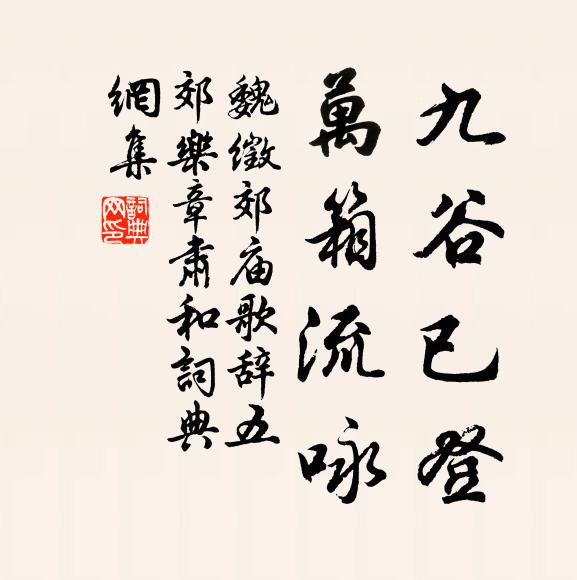 九谷已登
萬箱流咏
魏徵郊庙歌辞五
郊樂章肅和詞典
網集
詞典網印